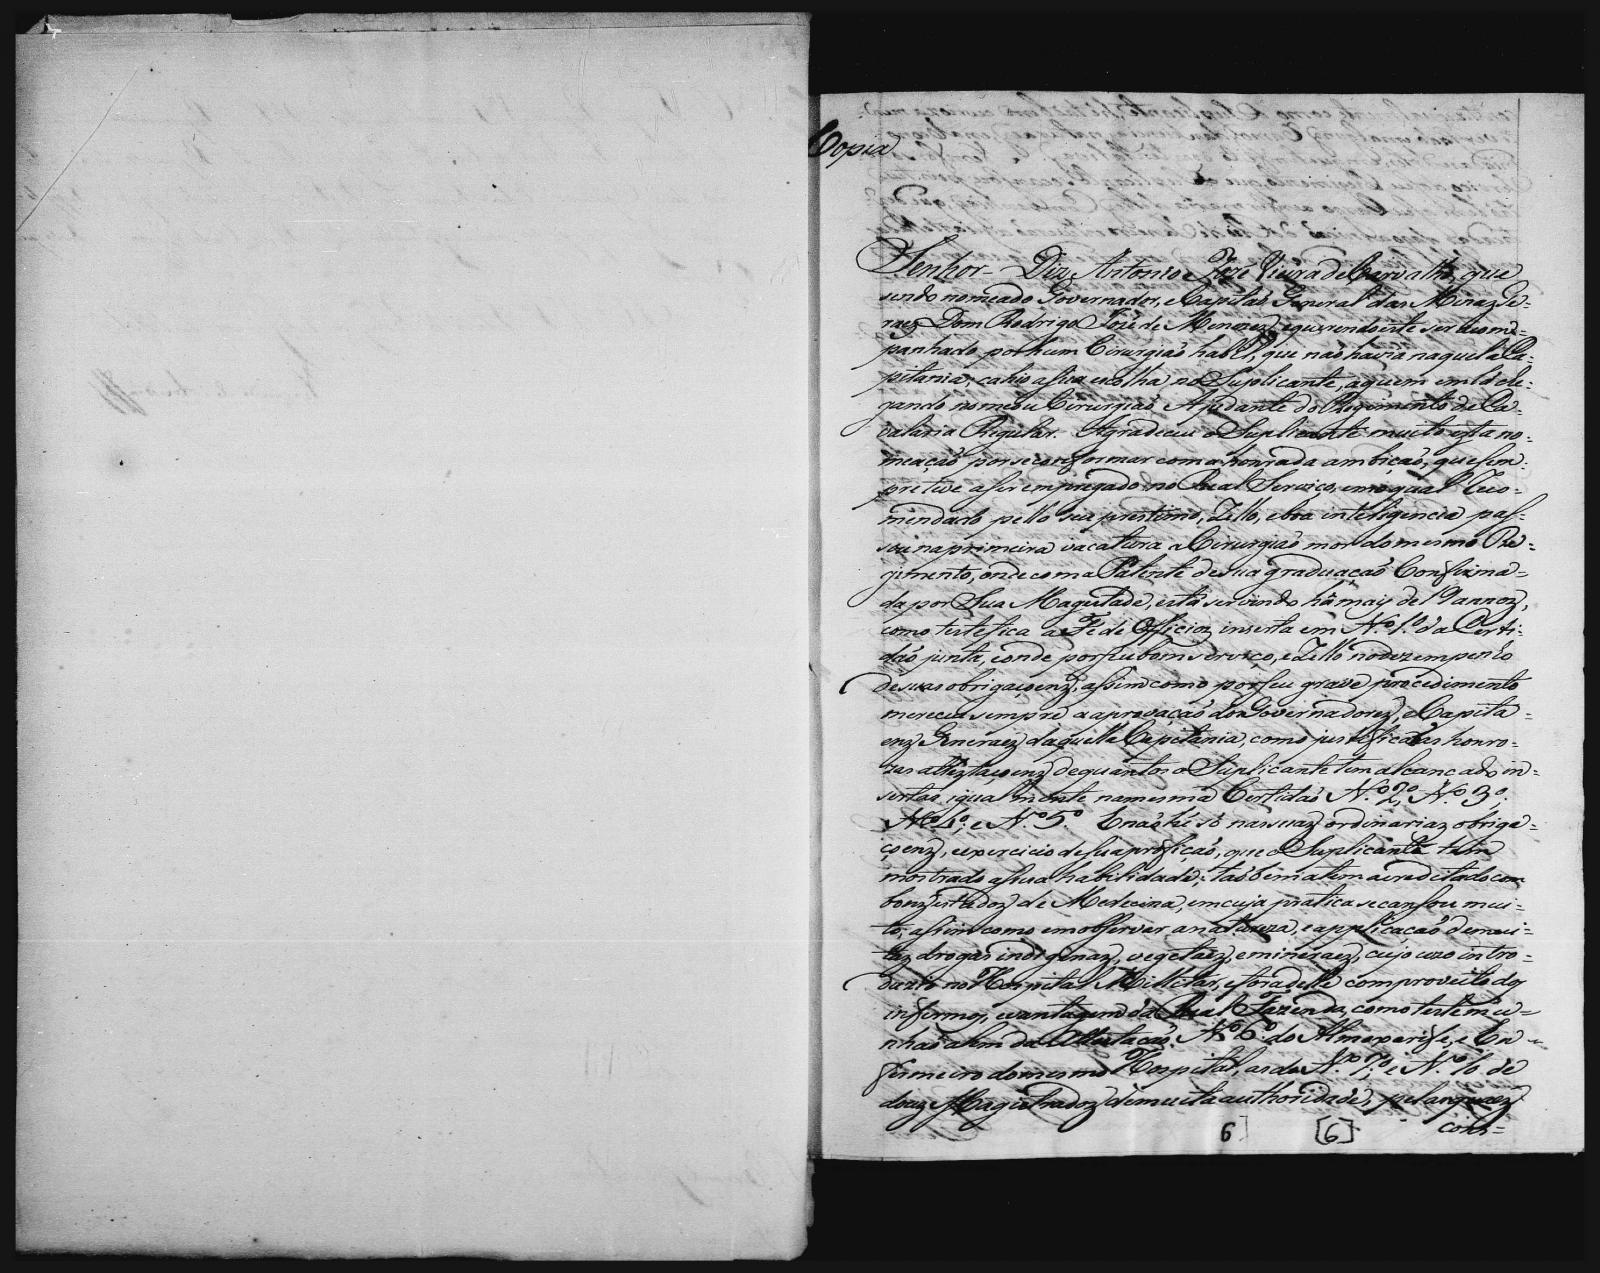 Copia
Senhor – Diz Antonio Jozé Vieira de Carvalho, que
sendo nomeado Governador, e Capitaõ General das Minaz Ge-
raez Dom Rodrigo José de Menezez, e querendo este ser acom-
panhado por hum Cirurgiaõ habel, que naõ havia naquela Ca-
pitania, cahio a sua escolha no Suplicante, a quem em lá che-
gando nomeou Cirurgiaõ Ajudante do Regimento de Ca-
valaria Regular. Agradeceu o Suplicante muito esta no-
meaçaõ por se conformar com a honrada ambiçaõ, que sem-
pre teve a ser empregado no Real Serviço, em o qual reco-
mendado pello seu prestimo, Zello, e boa inteligencia pas-
sou na primeira vacatura a Cirurgiaõ mor do mesmo Re-
gimento, onde com a Patente de sua graduaçaõ Confirma-
da por Sua Magestade, está servindo há maiz de 19 annoz,
como testefica a Fé de Officioz inserta em N.º 1.º da Certi-
daõ junta, e onde por seu bom serviço, e Zello no dezempenho
de suas obrigaçoenz, assim como por seu grave procedimento
mereceu sempre a aprovaçaõ dos Governadorez, e Capita-
enz Generaez daquella Capitania, como justeficaõ as honro-
zas attestaçoenz de quantos o Suplicante tem alcançado in-
sertas igualmente na mesma Certidaõ N.º 2.º N.º 3.º;
N.º 4.º; e N.º 5.º E naõ hé só nas suaz ordinariaz obriga-
çoenz, e exercicio de sua profiçaõ, que o Suplicante tem
mostrado a sua habilidade; taõbem a tem acreditado com
bonz estudoz de Medecina, em cuja pratica se cansou mui-
to; assim como em observar a natureza, e applicaçaõ de mui-
taz drogas indigenaz, vegetaez, e mineraez, cujo uzo intro-
duzio no Hospital Militar, e fora delle com proveito doz
infermoz, e vantagem da Real Fazenda, como testemu-
nhaõ alem da Attestaçaõ N.º 6.º do Almoxarife, e En-
fermeiro do mesmo Hospital, as de N.º 7.º e N.º 16 de
douz Magistradoz de muita authoridade, pelas quaez
cons-
6 [6]